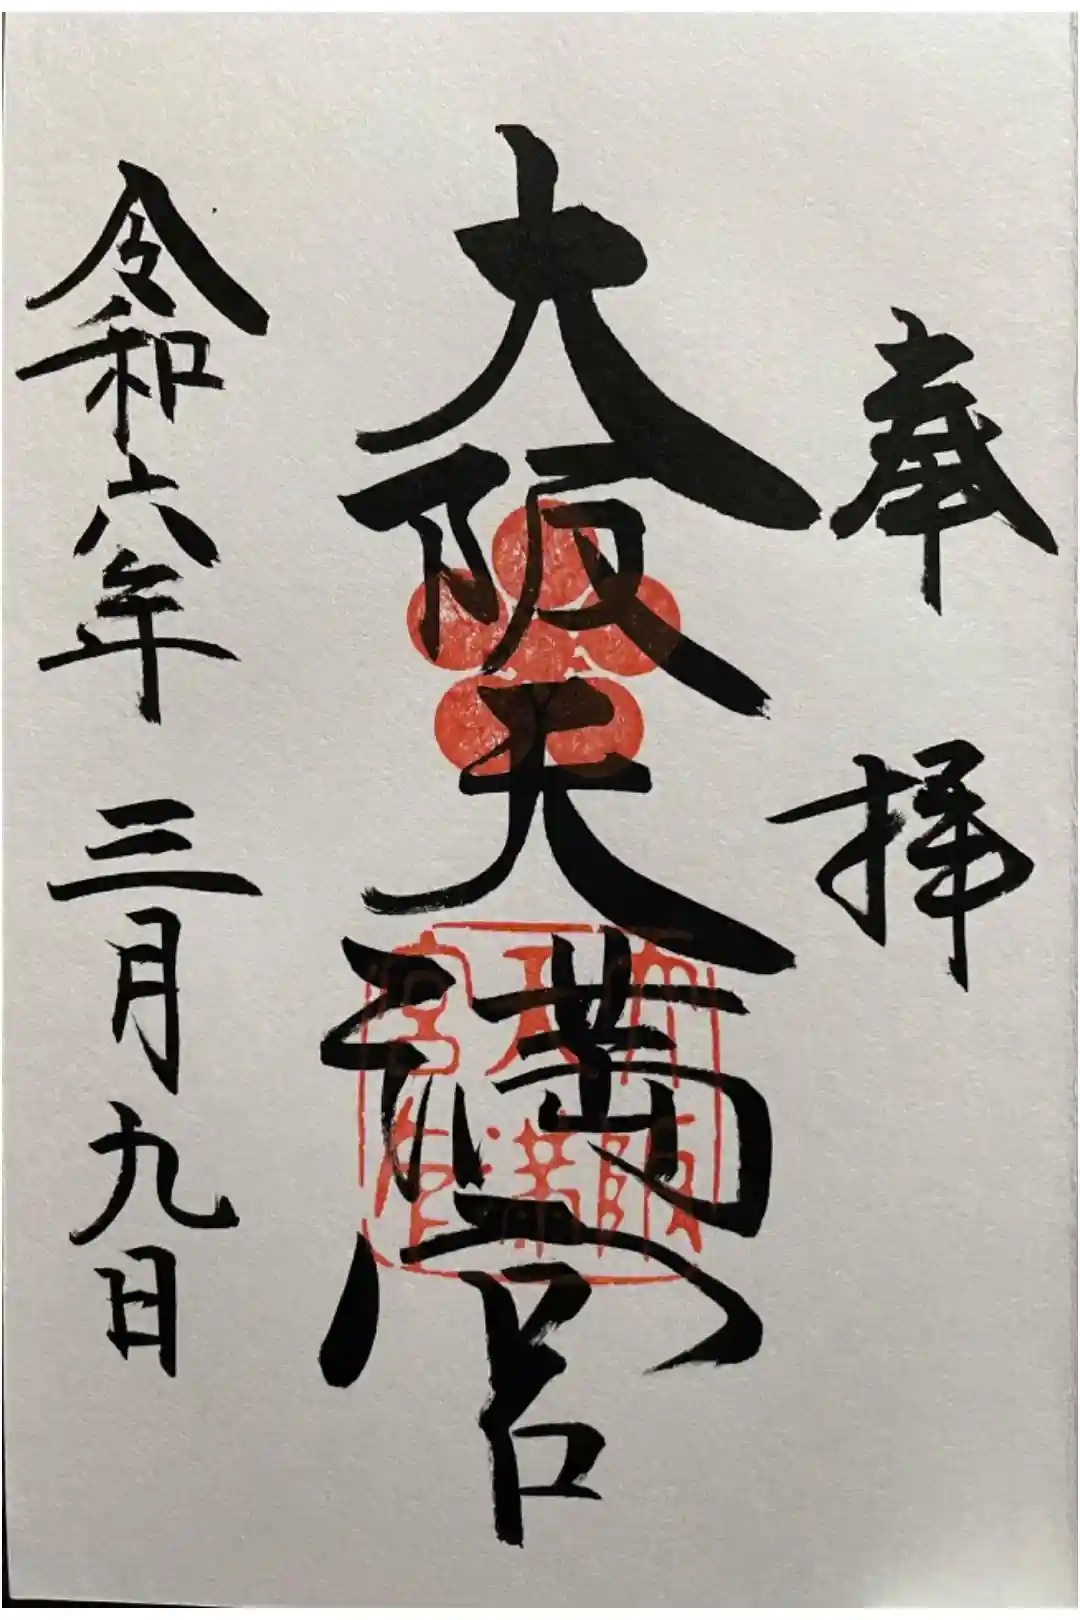 奉拝
大阪天満宮
令和六年三月九日
大阪
天満
宮